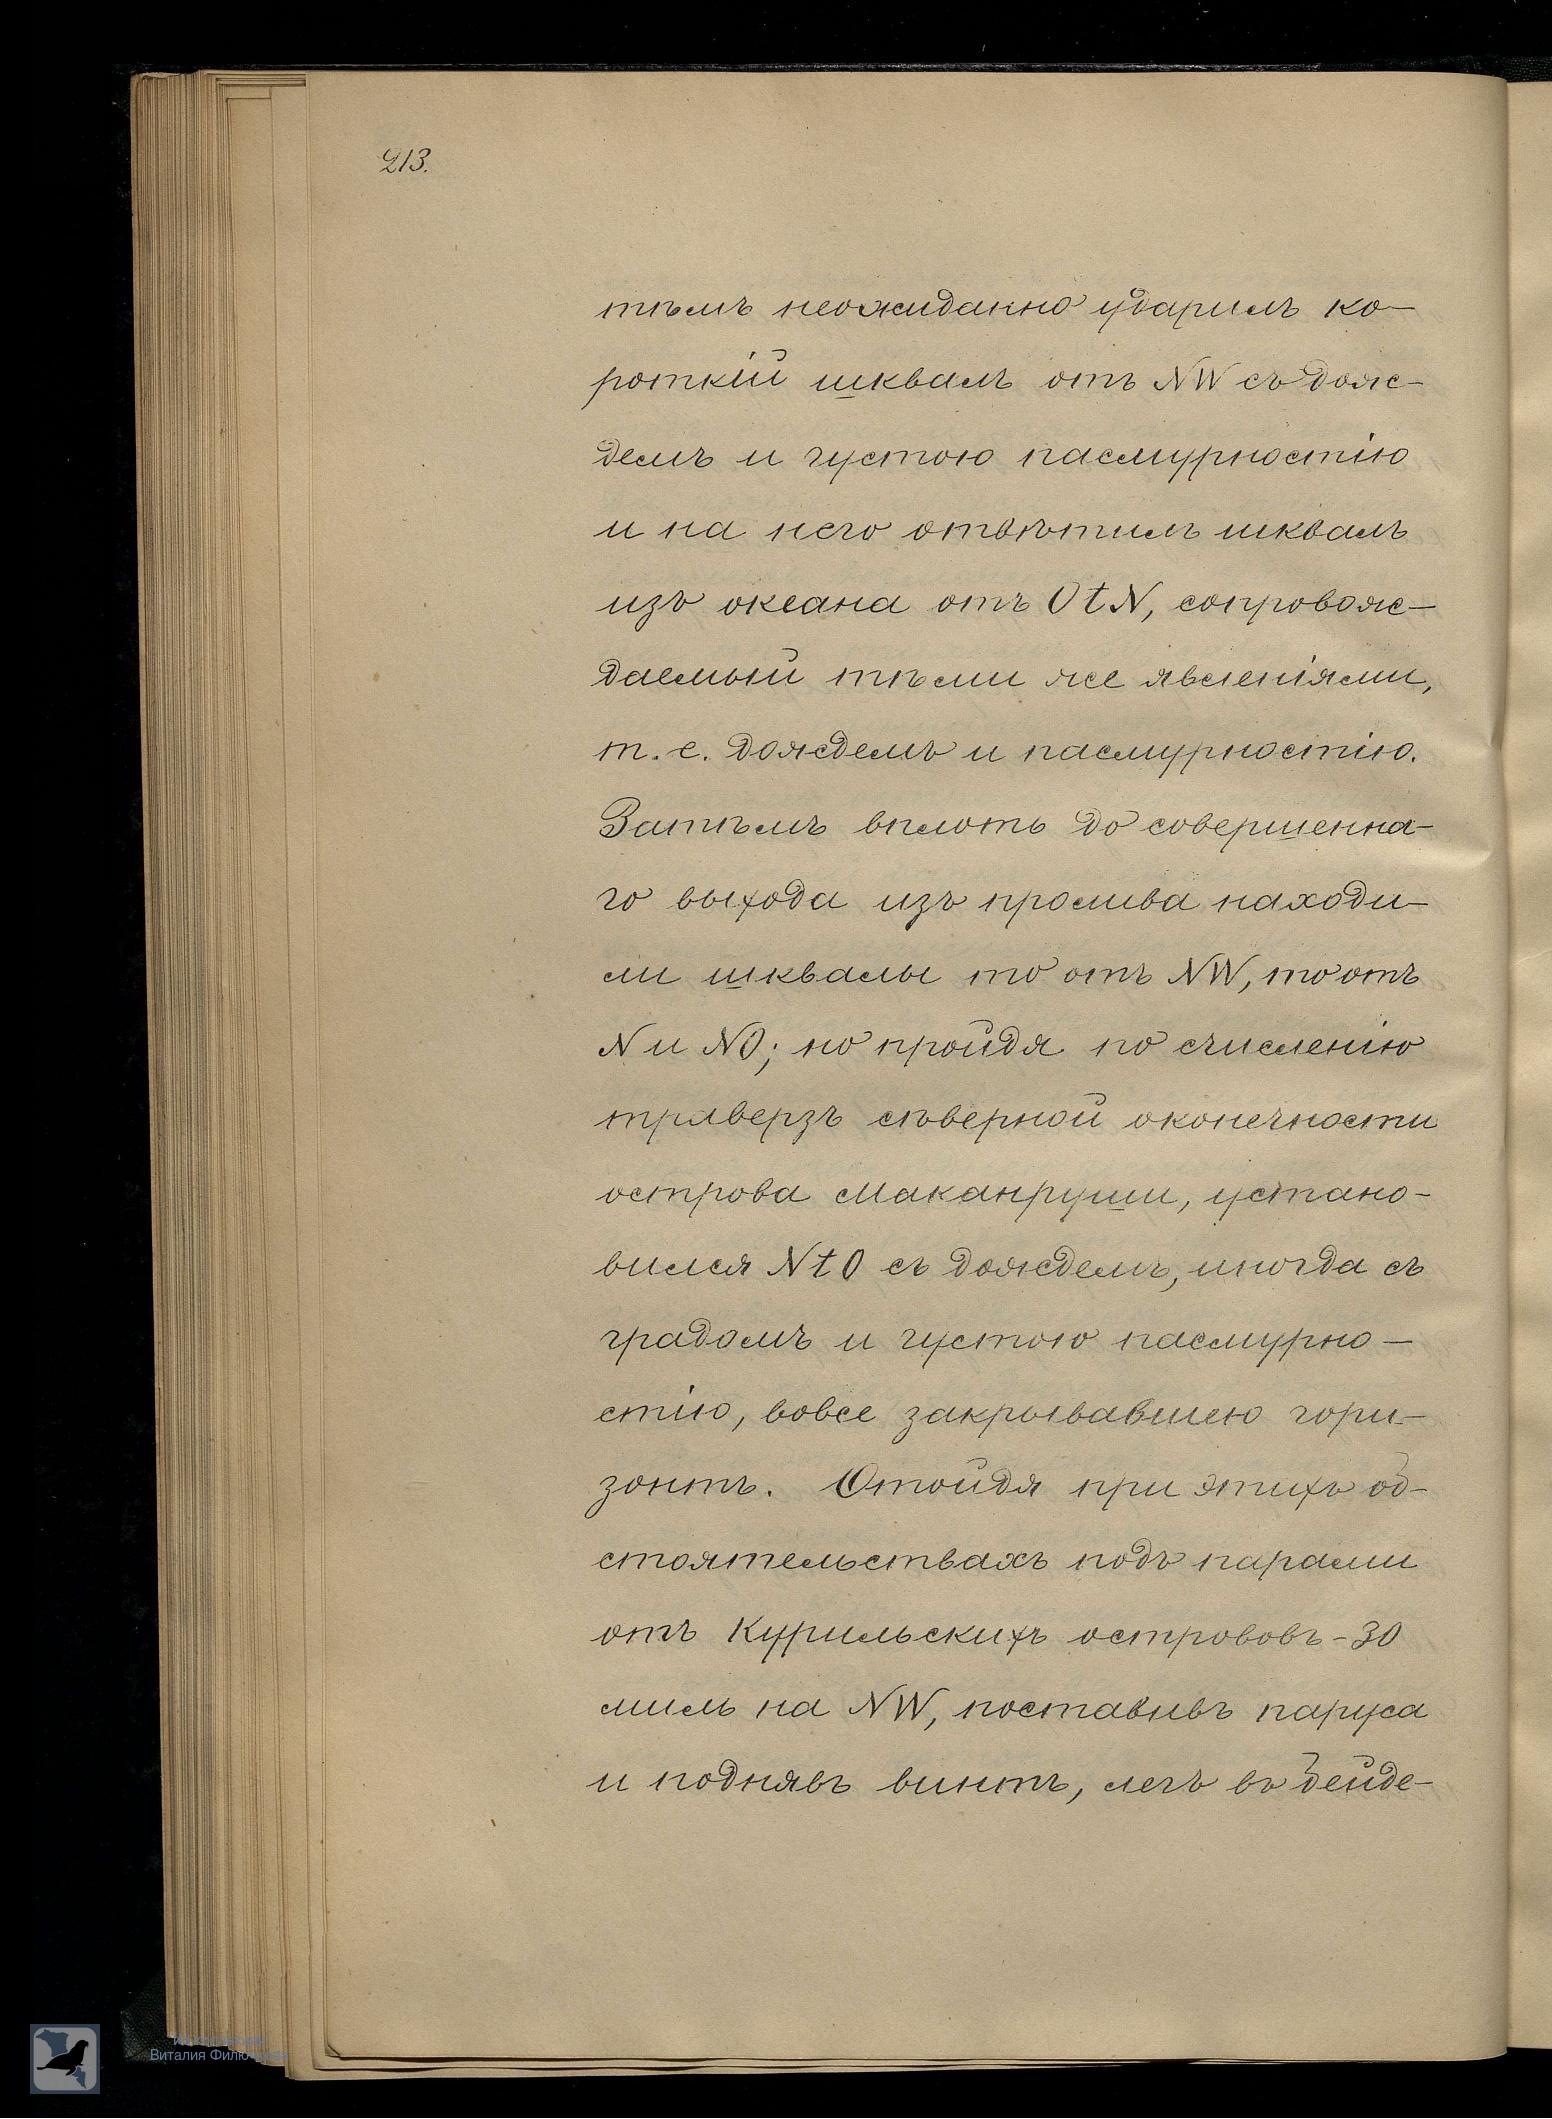 213.
тѣмъ неожиданно ударилъ ко-
роткій шквалъ отъ NW съ дож-
демъ и густою пасмурностію
и на него отвѣтилъ шквалъ
изъ океана отъ OtN, сопровож-
даемый тѣми же явленіями,
т. е. дождемъ и пасмурностію.
Затѣмъ вплоть до совершенна-
го выхода изъ пролива находи-
ли шквалы то отъ NW, то отъ
N и NO; но пройдя по счисленію
траверзъ сѣверной оконечности
острова Маканруши, устано-
вился NtO съ дождемъ, иногда съ
градомъ и густою пасмурно-
стію, вовсе закрывавшею гори-
зонтъ. Отойдя при этихъ об-
стоятельствахъ подъ парами
отъ Курильскихъ острововъ - 30
миль на NW, поставивъ паруса
и поднявъ винтъ, легъ въ бейде-
Виталия Филю